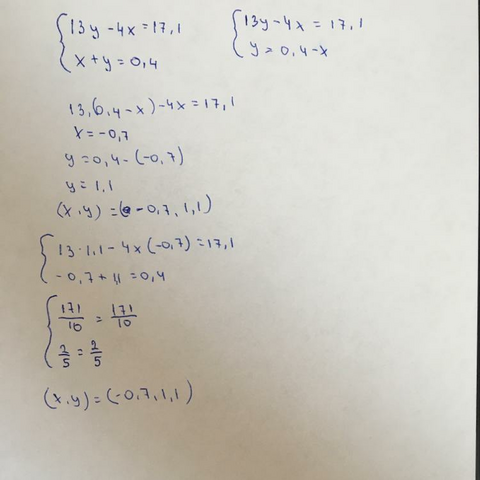 {13y-4x=17,1
{x+y=0,4
{13y-4x=17,1
{y=0,4-x
13,(0,4-x)-4x=17,1
x=-0,7
y=0,4-(-0,7)
y=1,1
(x,y)=(-0,7,1,1)
{13·1,1-4x(-0,7)=17,1
{-0,7+1,1=0,4
{171/10=171/10
{2/5=2/5
(x,y)=(-0,7,1,1)